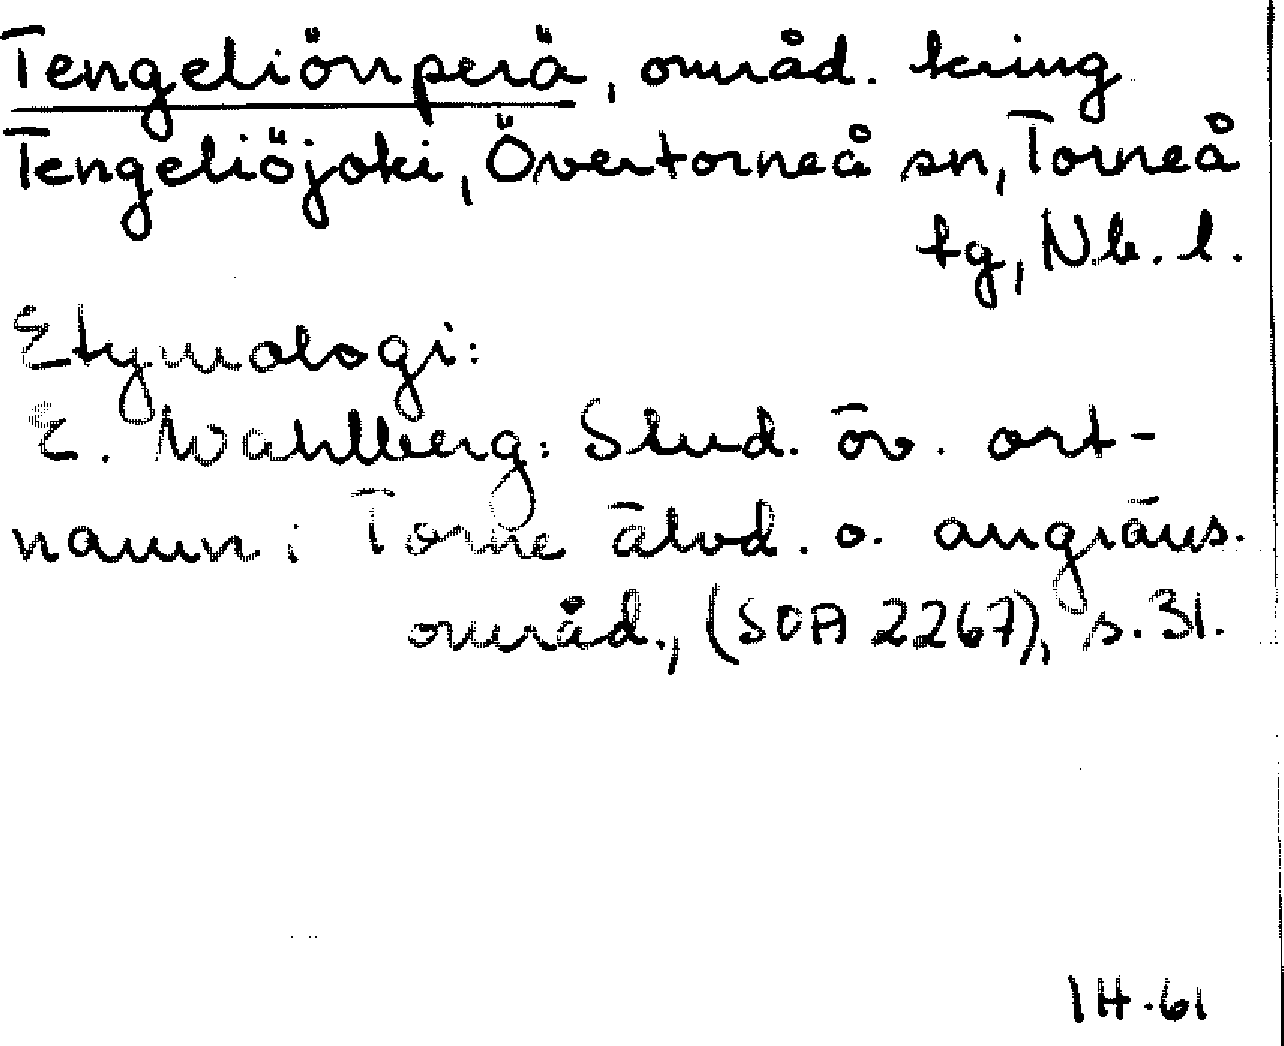 Tengeliönperä, områd. kring
Tengeliöjoki, Övertorneå sn, Torneå
tg, Nb. l.
Etymologi:
E. Wahlberg: Stud. öv. ort-
namn i Torne älvd. o. angräns.
områd., (SOA 2267), s. 31.
IH-61